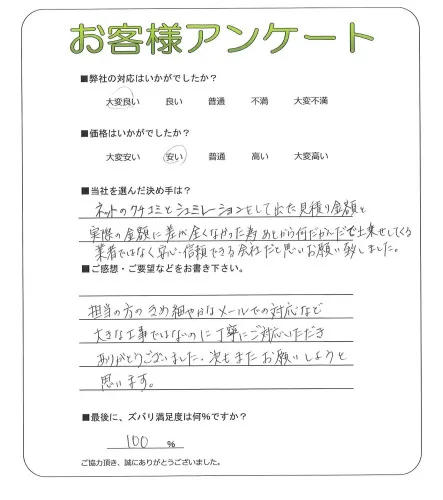 お客様アンケート
■弊社の対応はいかがでしたか？
大変良い　良い　普通　不満　大変不満
■価格はいかがでしたか？
大変安い　安い　普通　高い　大変高い
■当社を選んだ決め手は？
ネットのクチコミとシュミレーションをして出た見積り金額と
実際の金額に差が全くなかった為 あとから何だかんだで上乗せしてくる
業者ではなく安心・信頼できる会社だと思いお願い致しました。
■ご感想・ご要望などをお書き下さい。
担当の方のきめ細やかなメールでの対応など
大きな工事ではないのに丁寧にご対応いただき
ありがとうございました。次もまたお願いしようと
思います。
■最後に、ズバリ満足度は何％ですか？
100 ％
ご協力頂き、誠にありがとうございました。